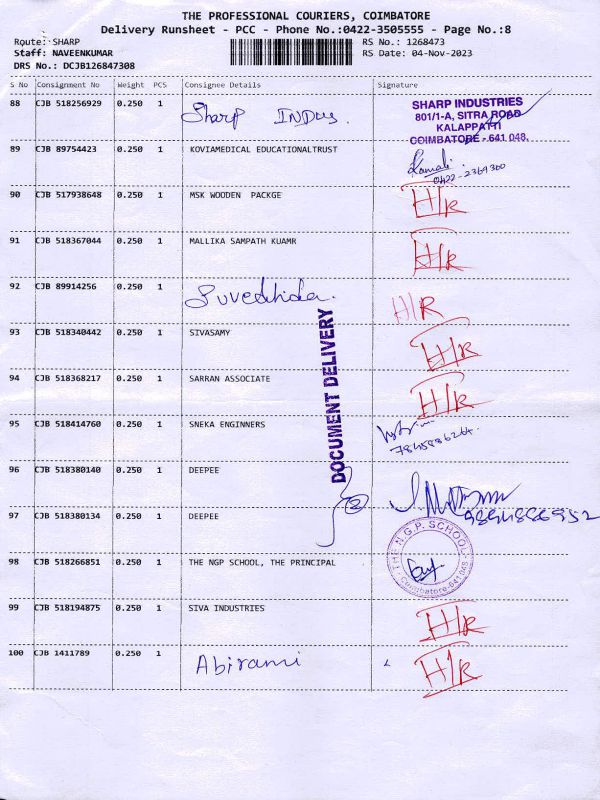 THE PROFESSIONAL COURIERS, COIMBATORE
Delivery Runsheet - PCC - Phone No.:0422-3505555 - Page No.:8
Route: SHARP
RS No.: 1268473
Staff: NAVEENKUMAR
RS Date: 04-Nov-2023
DRS No.: DCJB126847308
S No Consignment No Weight PCS Consignee Details Signature
88 CJB 518256929 0.250 1 Sharp INDUS.
SHARP INDUSTRIES
801/1-A, SITRA ROAD
KALAPPATTI
COIMBATORE - 641 048.
89 CJB 89754423 0.250 1 KOVIAMEDICAL EDUCATIONALTRUST
Kamali
0422-2369300
90 CJB 517938648 0.250 1 MSK WOODEN PACKGE H/R
91 CJB 518367044 0.250 1 MALLIKA SAMPATH KUAMR H/R
92 CJB 89914256 0.250 1 H/R
93 CJB 518340442 0.250 1 SIVASAMY H/R
94 CJB 518368217 0.250 1 SARRAN ASSOCIATE H/R
DOCUMENT DELIVERY
95 CJB 518414760 0.250 1 SNEKA ENGINNERS
96 CJB 518380140 0.250 1 DEEPEE
2
97 CJB 518380134 0.250 1 DEEPEE
98 CJB 518266851 0.250 1 THE NGP SCHOOL, THE PRINCIPAL
THE N.G.P. SCHOOL
Coimbatore-641048
99 CJB 518194875 0.250 1 SIVA INDUSTRIES H/R
100 CJB 1411789 0.250 1 Abirami H/R